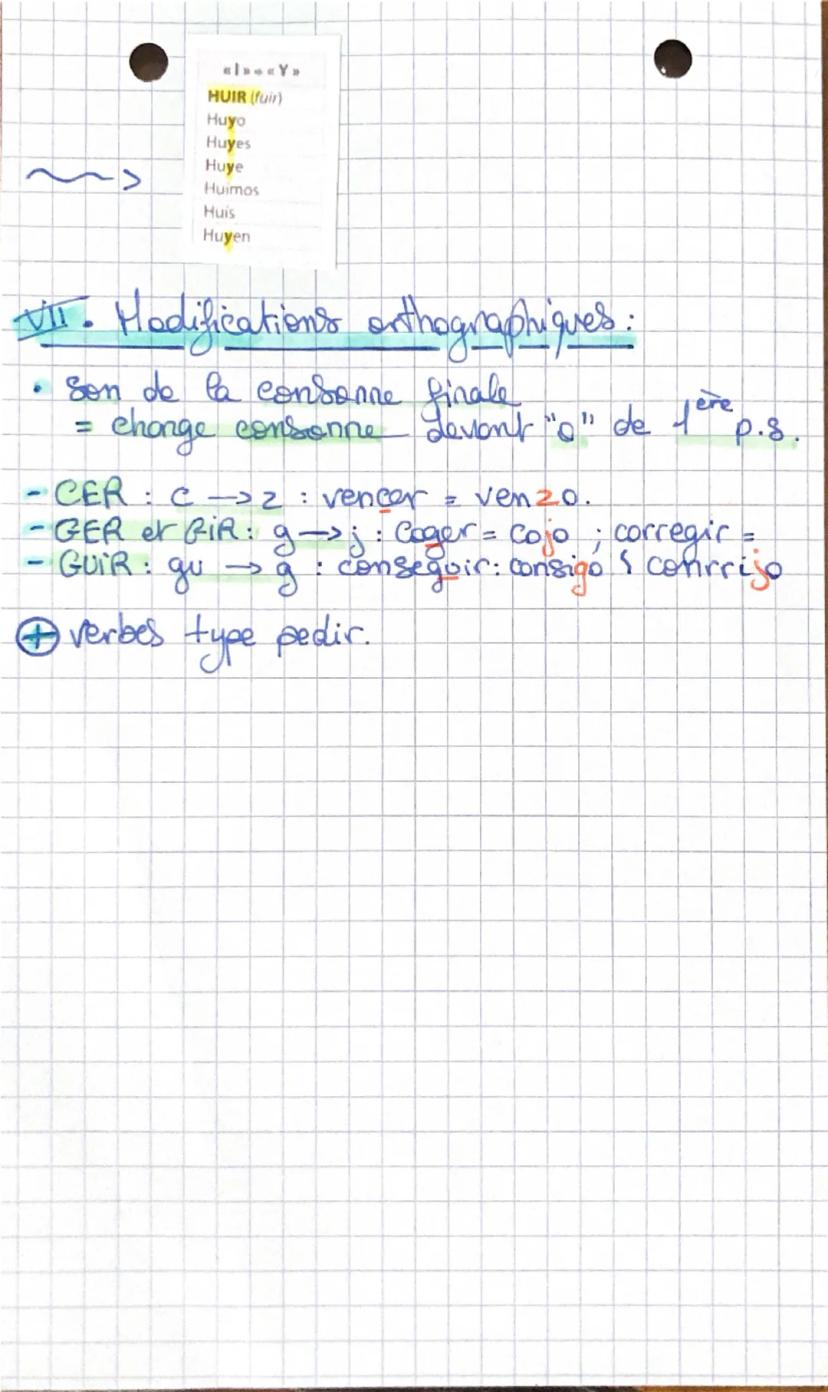 «I»→«Y»
HUIR (fuir)
Huyo
Huyes
Huye
Huimos
Huis
Huyen
VII. Modifications orthographiques :
• son de la consonne finale
= change consonne devant "o" de 1ère p.s.
- CER : c → z : vencer = venzo.
- GER et GIR : g → j : coger = cojo ; corregir =
- GUIR : gu → g : conseguir : consigo ς conrrijo
⊕ verbes type pedir.